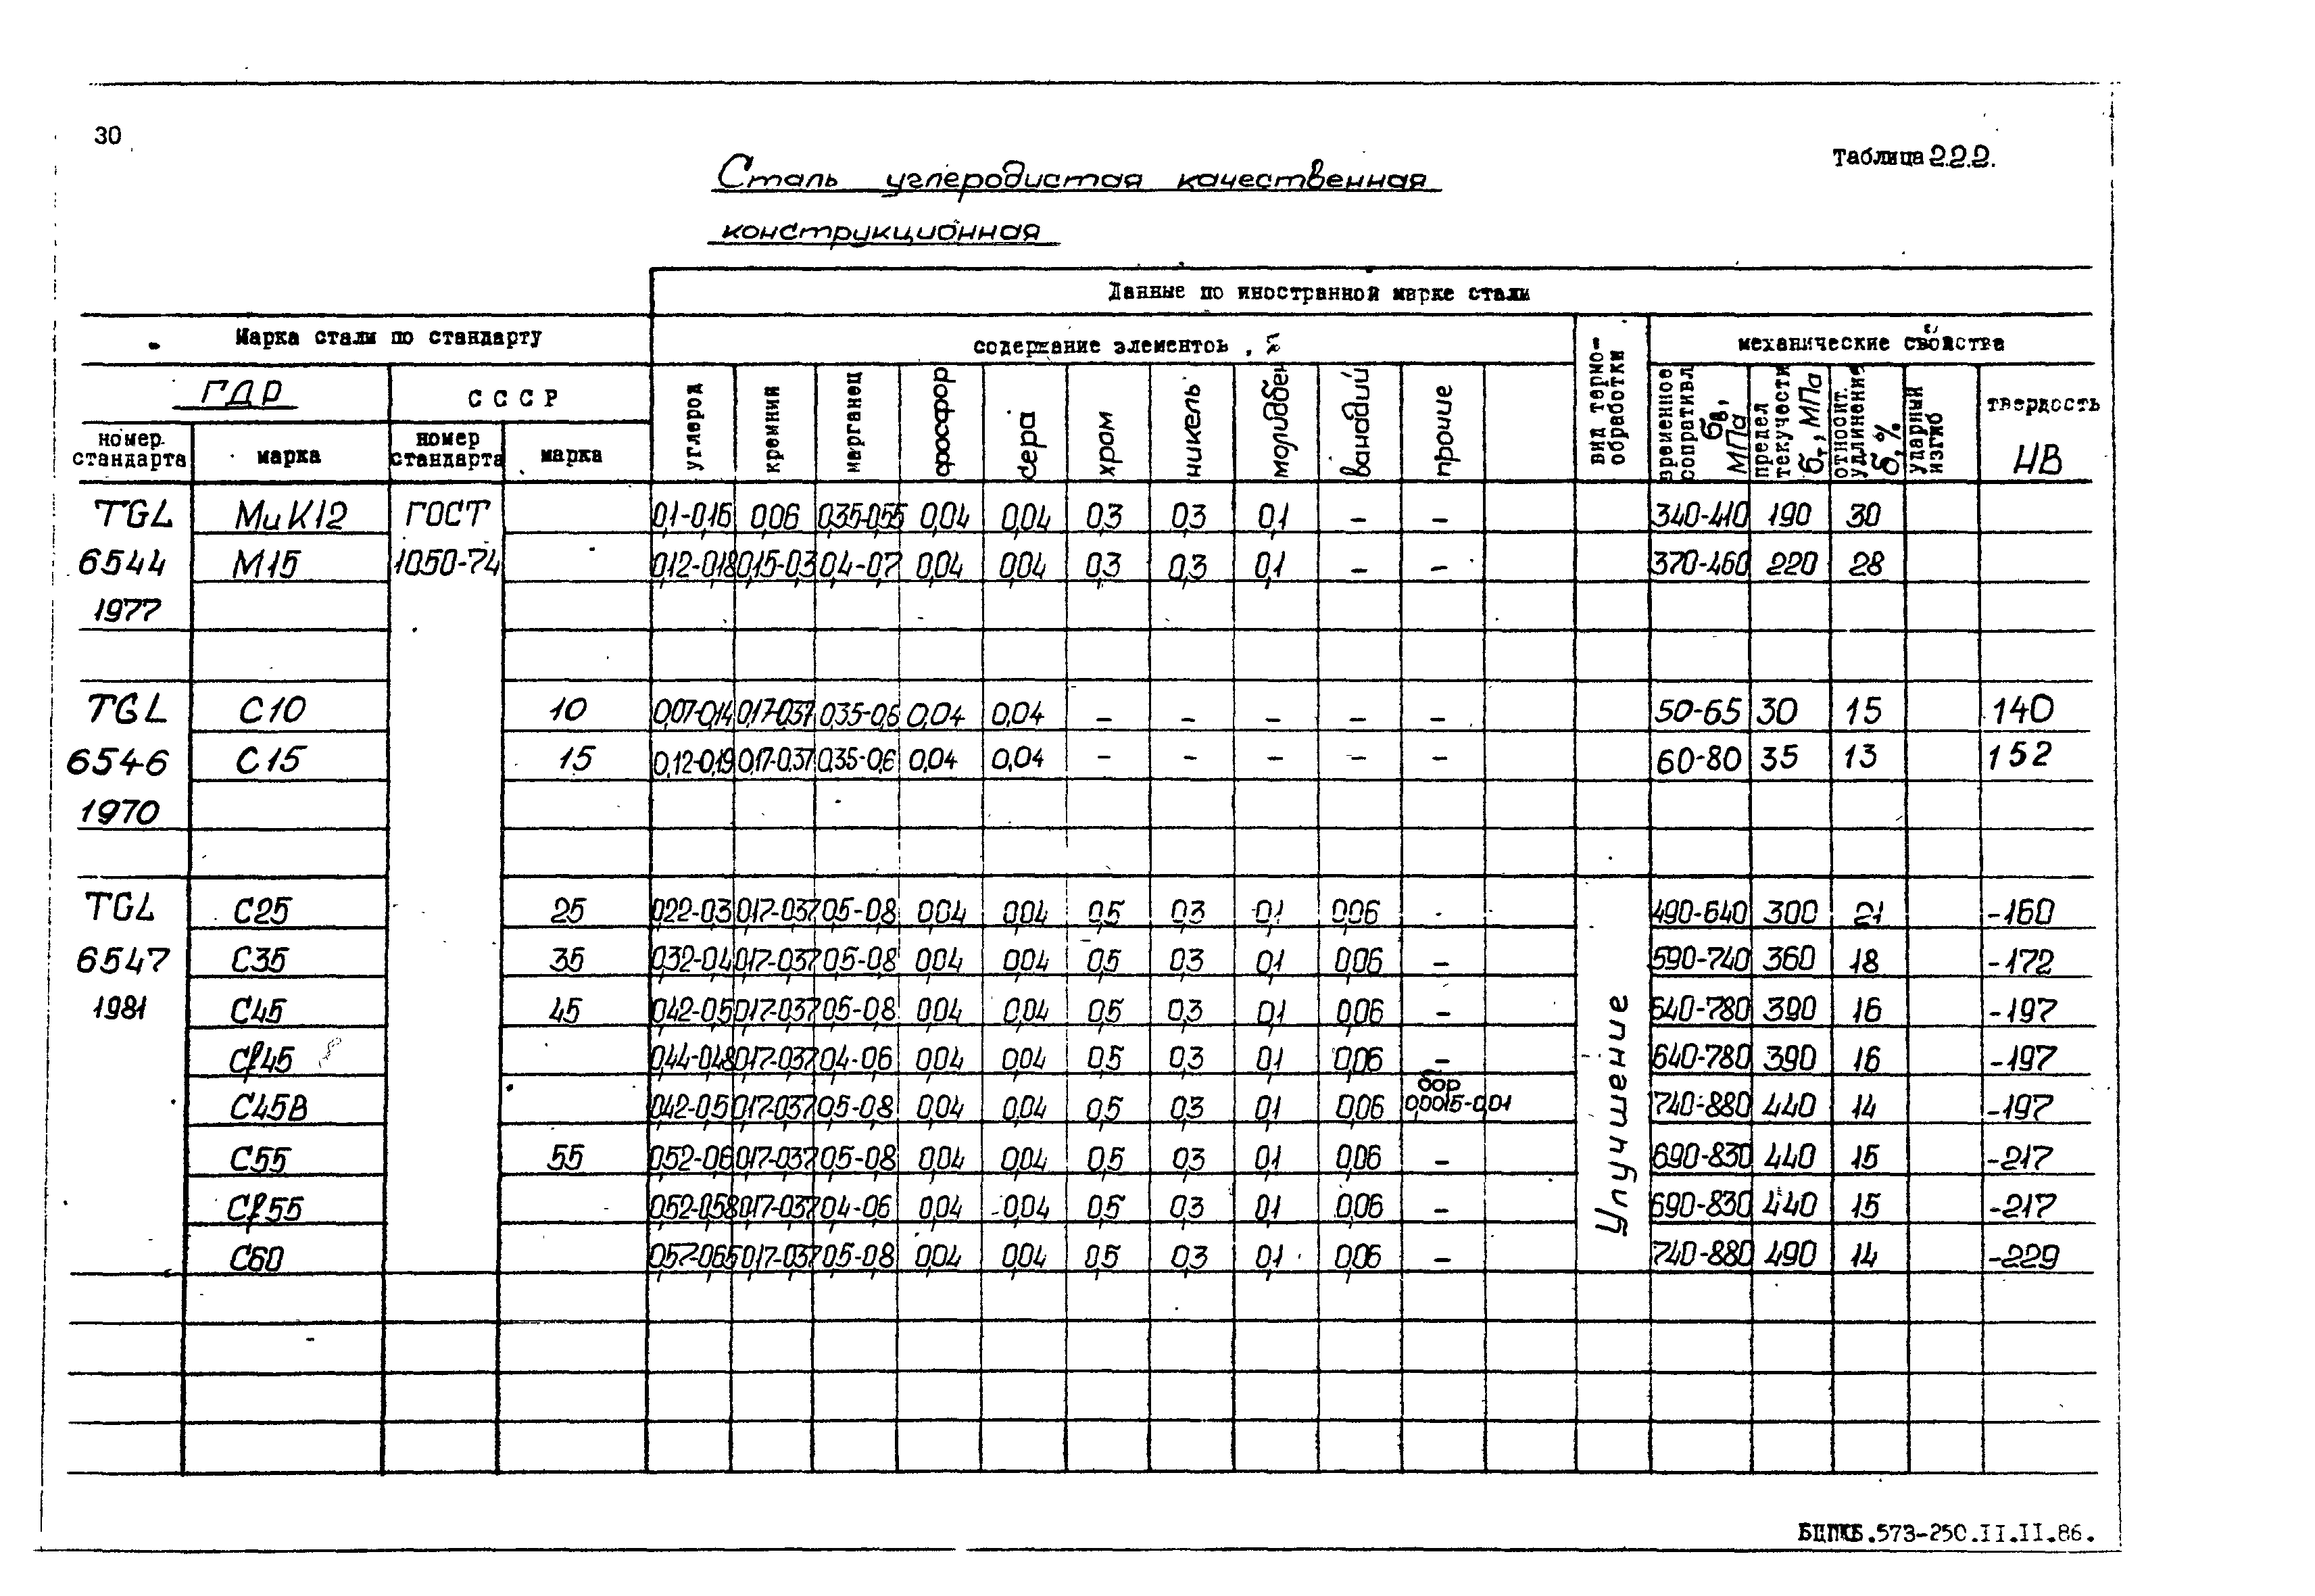 30
Таблица 2.2.2.
Сталь углеродистая качественная
конструкционная
Данные по иностранной марке стали
Марка стали по стандарту
содержание элементов, %
вид термо-
обработки
механические свойства
ГДР
СССР
номер
стандарта
марка
номер
стандарта
марка
углерод
кремний
марганец
фосфор
сера
хром
никель
молибден
ванадий
прочие
временное
сопротивл.
σв,
МПа
предел
текучести
σт, МПа
относит.
удлинение
δ, %
ударный
изгиб
твердость
HB
TGL МиК12 ГОСТ 0,1-0,16 0,06 0,35-0,55 0,04 0,04 0,3 0,3 0,1 – – 340-410 190 30
6544 М15 1050-74 0,12-0,18 0,15-0,3 0,4-0,7 0,04 0,04 0,3 0,3 0,1 – – 370-460 220 28
1977
TGL С10 10 0,07-0,14 0,17-0,37 0,35-0,6 0,04 0,04 – – – – – 50-65 30 15 140
6546 С15 15 0,12-0,19 0,17-0,37 0,35-0,6 0,04 0,04 – – – – – 60-80 35 13 152
1970
TGL С25 25 0,22-0,3 0,17-0,37 0,5-0,8 0,04 0,04 0,5 0,3 0,1 0,06 - 490-640 300 21 -160
6547 С35 35 0,32-0,4 0,17-0,37 0,5-0,8 0,04 0,04 0,5 0,3 0,1 0,06 – 590-740 360 18 -172
1981 С45 45 0,42-0,5 0,17-0,37 0,5-0,8 0,04 0,04 0,5 0,3 0,1 0,06 – 640-780 390 16 -197
Cf45 0,44-0,48 0,17-0,37 0,4-0,6 0,04 0,04 0,5 0,3 0,1 0,06 – 640-780 390 16 -197
бор
С45В 0,42-0,5 0,17-0,37 0,5-0,8 0,04 0,04 0,5 0,3 0,1 0,06 0,0015-0,01 740-880 440 14 -197
С55 55 0,52-0,6 0,17-0,37 0,5-0,8 0,04 0,04 0,5 0,3 0,1 0,06 – 690-830 440 15 -217
Cf55 0,52-0,58 0,17-0,37 0,4-0,6 0,04 0,04 0,5 0,3 0,1 0,06 – 690-830 440 15 -217
С60 0,57-0,65 0,17-0,37 0,5-0,8 0,04 0,04 0,5 0,3 0,1 0,06 – 740-880 490 14 -229
Улучшение
БЦПКБ.573-250.II.II.86.